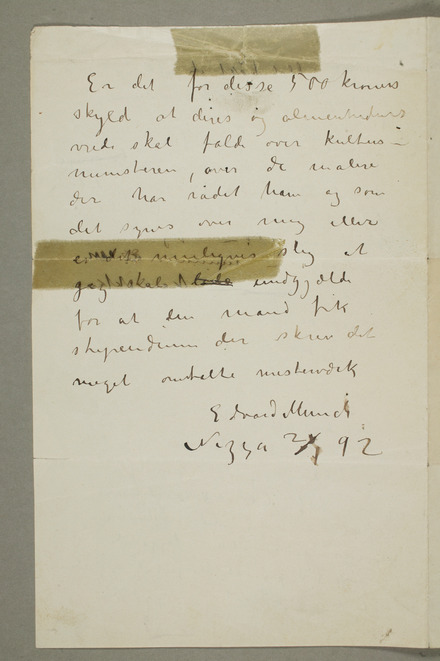 Er det for disse 500 kroners
skyld at diges og
vrede skal falde over kultus-
ministeren, over de malere
der har rådet ham og som
det synes over mig eller
er det rimeligvis slig at
jeg skal lide undgjælde
for at den mand fik
stipendium der skrev det
meget omtalte mesterværk
Edvard Munch
Nizza 92